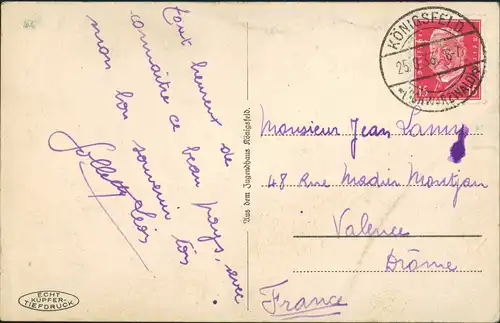 Tout heureux de
connaître ce beau pays, avec
mon bon souvenir
ECHT
KUPFER-
TIEFDRUCK
Aus dem Jugendhaus Königsfeld.
KÖNIGSFELD
15
Monsieur Jean Lamy
48 Rue Madier Montjau
Valence
Drôme
France